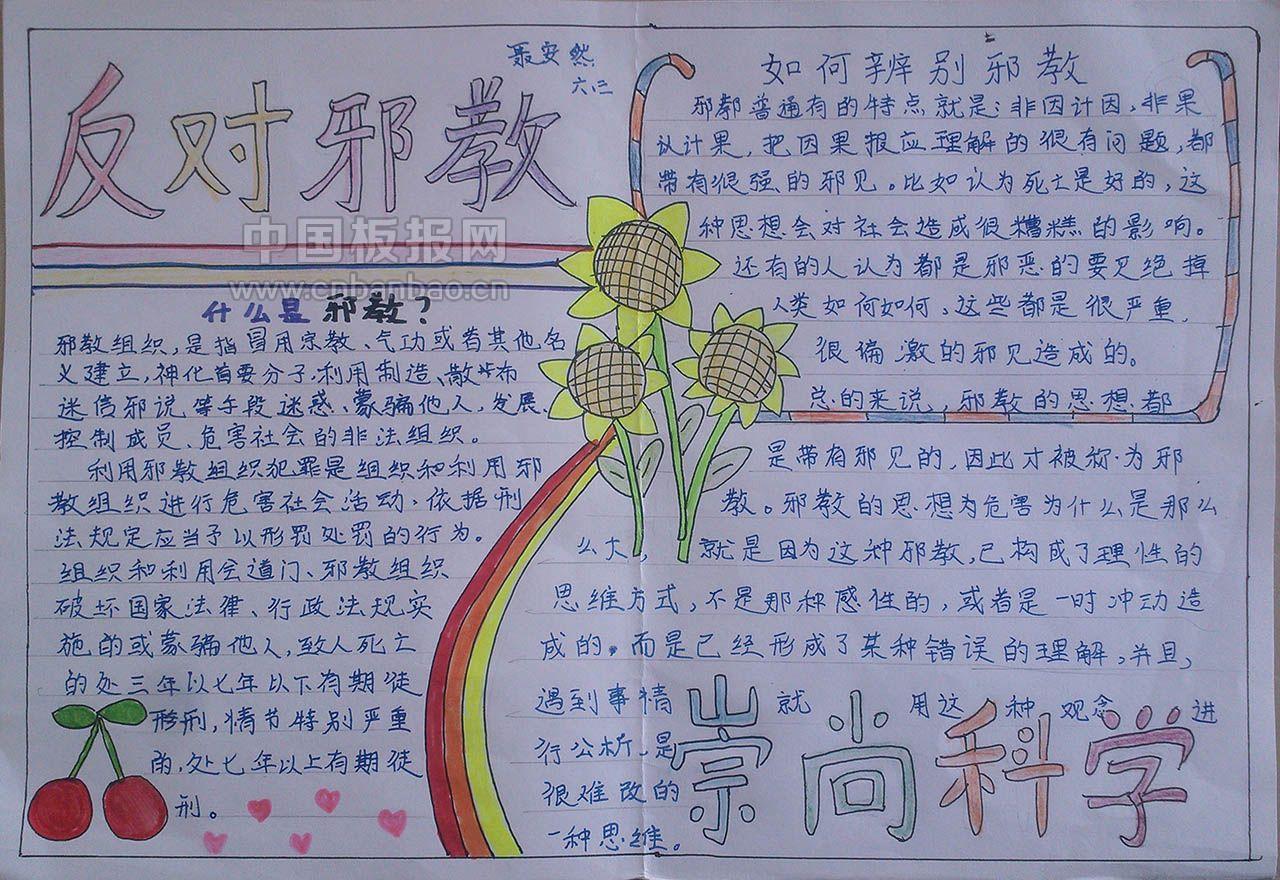 反对邪教
聂安然
六.二
中国板报网
www.cnbanbao.cn
什么是邪教?
邪教组织,是指冒用宗教、气功或者其他名
义建立,神化首要分子,利用制造、散布
迷信邪说等手段迷惑、蒙骗他人,发展、
控制成员、危害社会的非法组织。
利用邪教组织犯罪是组织和利用邪
教组织进行危害社会活动、依据刑
法规定应当予以形罚处罚的行为。
组织和利用会道门、邪教组织
破坏国家法律、行政法规实
施的或蒙骗他人,致人死亡
的处三年以七年以下有期徒
刑,情节特别严重
的,处七年以上有期徒
刑。
如何辨别邪教
邪教普通有的特点就是:非因计因,非果
认计果,把因果报应理解的很有问题,都
带有很强的邪见。比如认为死亡是好的,这
种思想会对社会造成很糟糕的影响。
还有的人认为都是邪恶的要灭绝掉
人类如何如何,这些都是很严重,
很偏激的邪见造成的。
总的来说,邪教的思想都
是带有邪见的,因此才被称为邪
教。邪教的思想为危害为什么是那么
么大,就是因为这种邪教,已构成了理性的
思维方式,不是那种感性的,或者是一时冲动造
成的。而是已经形成了某种错误的理解,并且,
遇到事情就用这种观念进
行公析,是
很难改的
一种思维。
崇尚科学